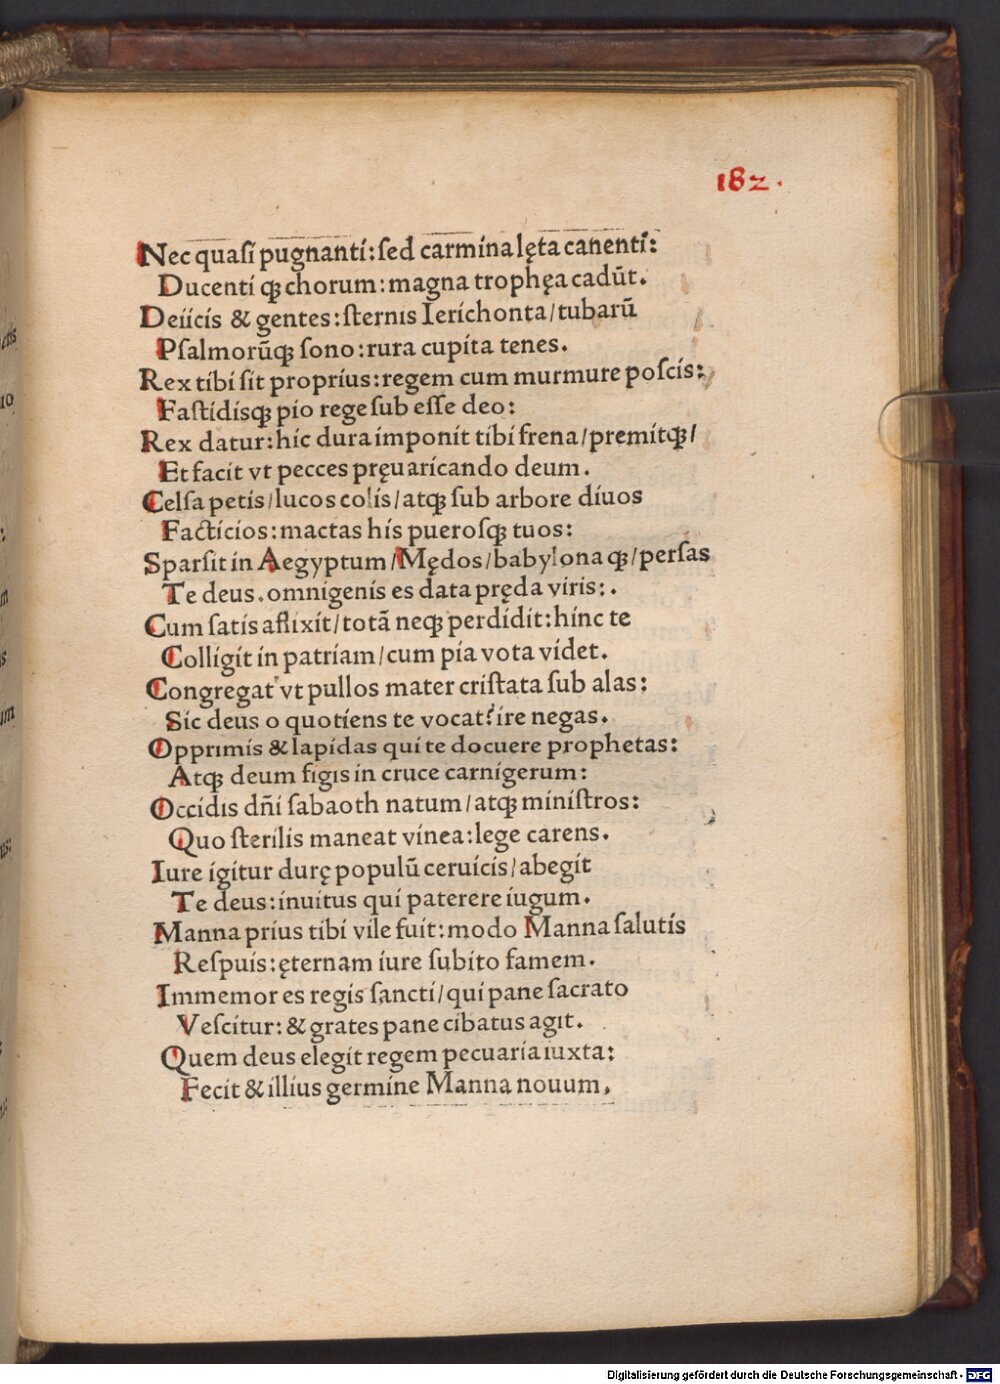 182.
Nec quasi pugnanti: sed carmina lęta canenti:
Ducenti qꝫ chorum: magna trophęa cadūt.
Deiicis & gentes: sternis Ierichonta/ tubarū
Psalmorūqꝫ sono: rura cupita tenes.
Rex tibi sit proprius: regem cum murmure poscis:
Fastidisqꝫ pio rege sub esse deo:
Rex datur: hic dura imponit tibi frena/ premitqꝫ/
Et facit vt pecces pręuaricando deum.
Celsa petis/ lucos colis/ atqꝫ sub arbore diuos
Facticios: mactas his puerosqꝫ tuos:
Sparsit in Aegyptum/ Mędos/ babylona qꝫ/ persas
Te deus. omnigenis es data pręda viris:.
Cum satis aflixit/ totā neqꝫ perdidit: hinc te
Colligit in patriam/ cum pia vota videt.
Congregat vt pullos mater cristata sub alas:
Sic deus o quotiens te vocat? ire negas.
Opprimis & lapidas qui te docuere prophetas:
Atqꝫ deum figis in cruce carnigerum:
Occidis dñi sabaoth natum/ atqꝫ ministros:
Quo sterilis maneat vinea: lege carens.
Iure igitur durę populū ceruicis/ abegit
Te deus: inuitus qui paterere iugum.
Manna prius tibi vile fuit: modo Manna salutis
Respuis: ęternam iure subito famem.
Immemor es regis sancti/ qui pane sacrato
Vescitur: & grates pane cibatus agit.
Quem deus elegit regem pecuaria iuxta:
Fecit & illius germine Manna nouum.
Digitalisierung gefördert durch die Deutsche Forschungsgemeinschaft - DFG